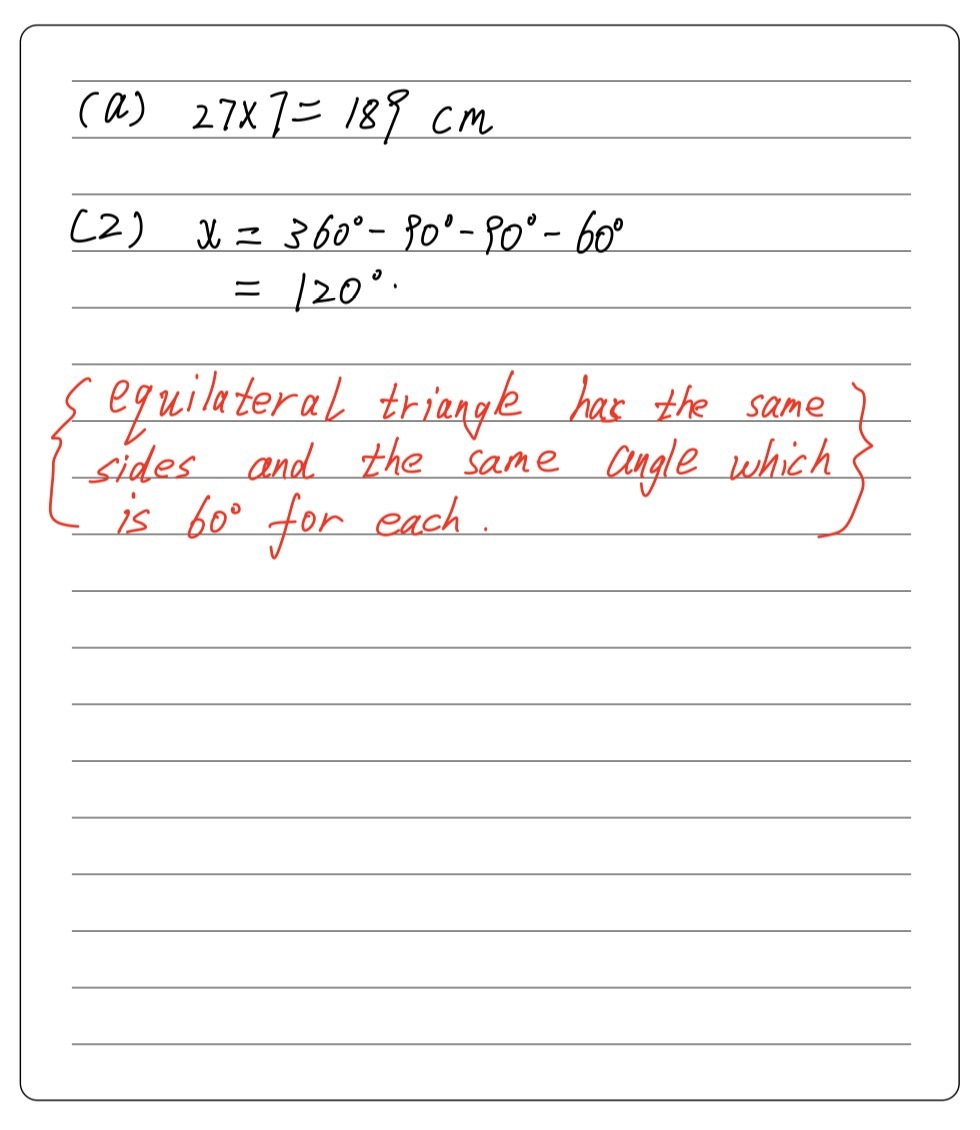 (a) 27×7= 189 cm
(2) x = 360°- 90°- 90°- 60°
= 120°.
{ equilateral triangle has the same }
sides and the same angle which
is 60° for each.